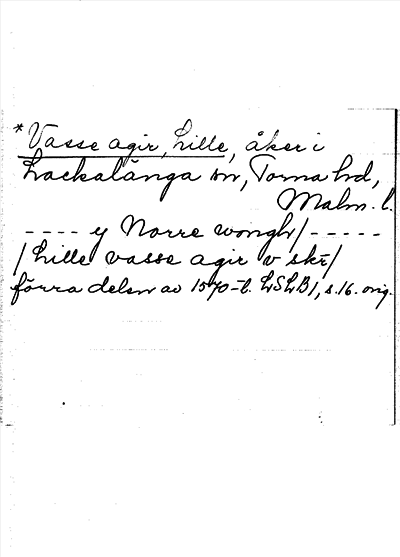 *Vasse agir, Lille, åker i
Lackalänga sn, Torna hd,
Malm. l.
---- y Norre wongh/-----
/Lille vasse agir v skr/
förra delen av 1570-t. LSLB1, s. 16. orig.